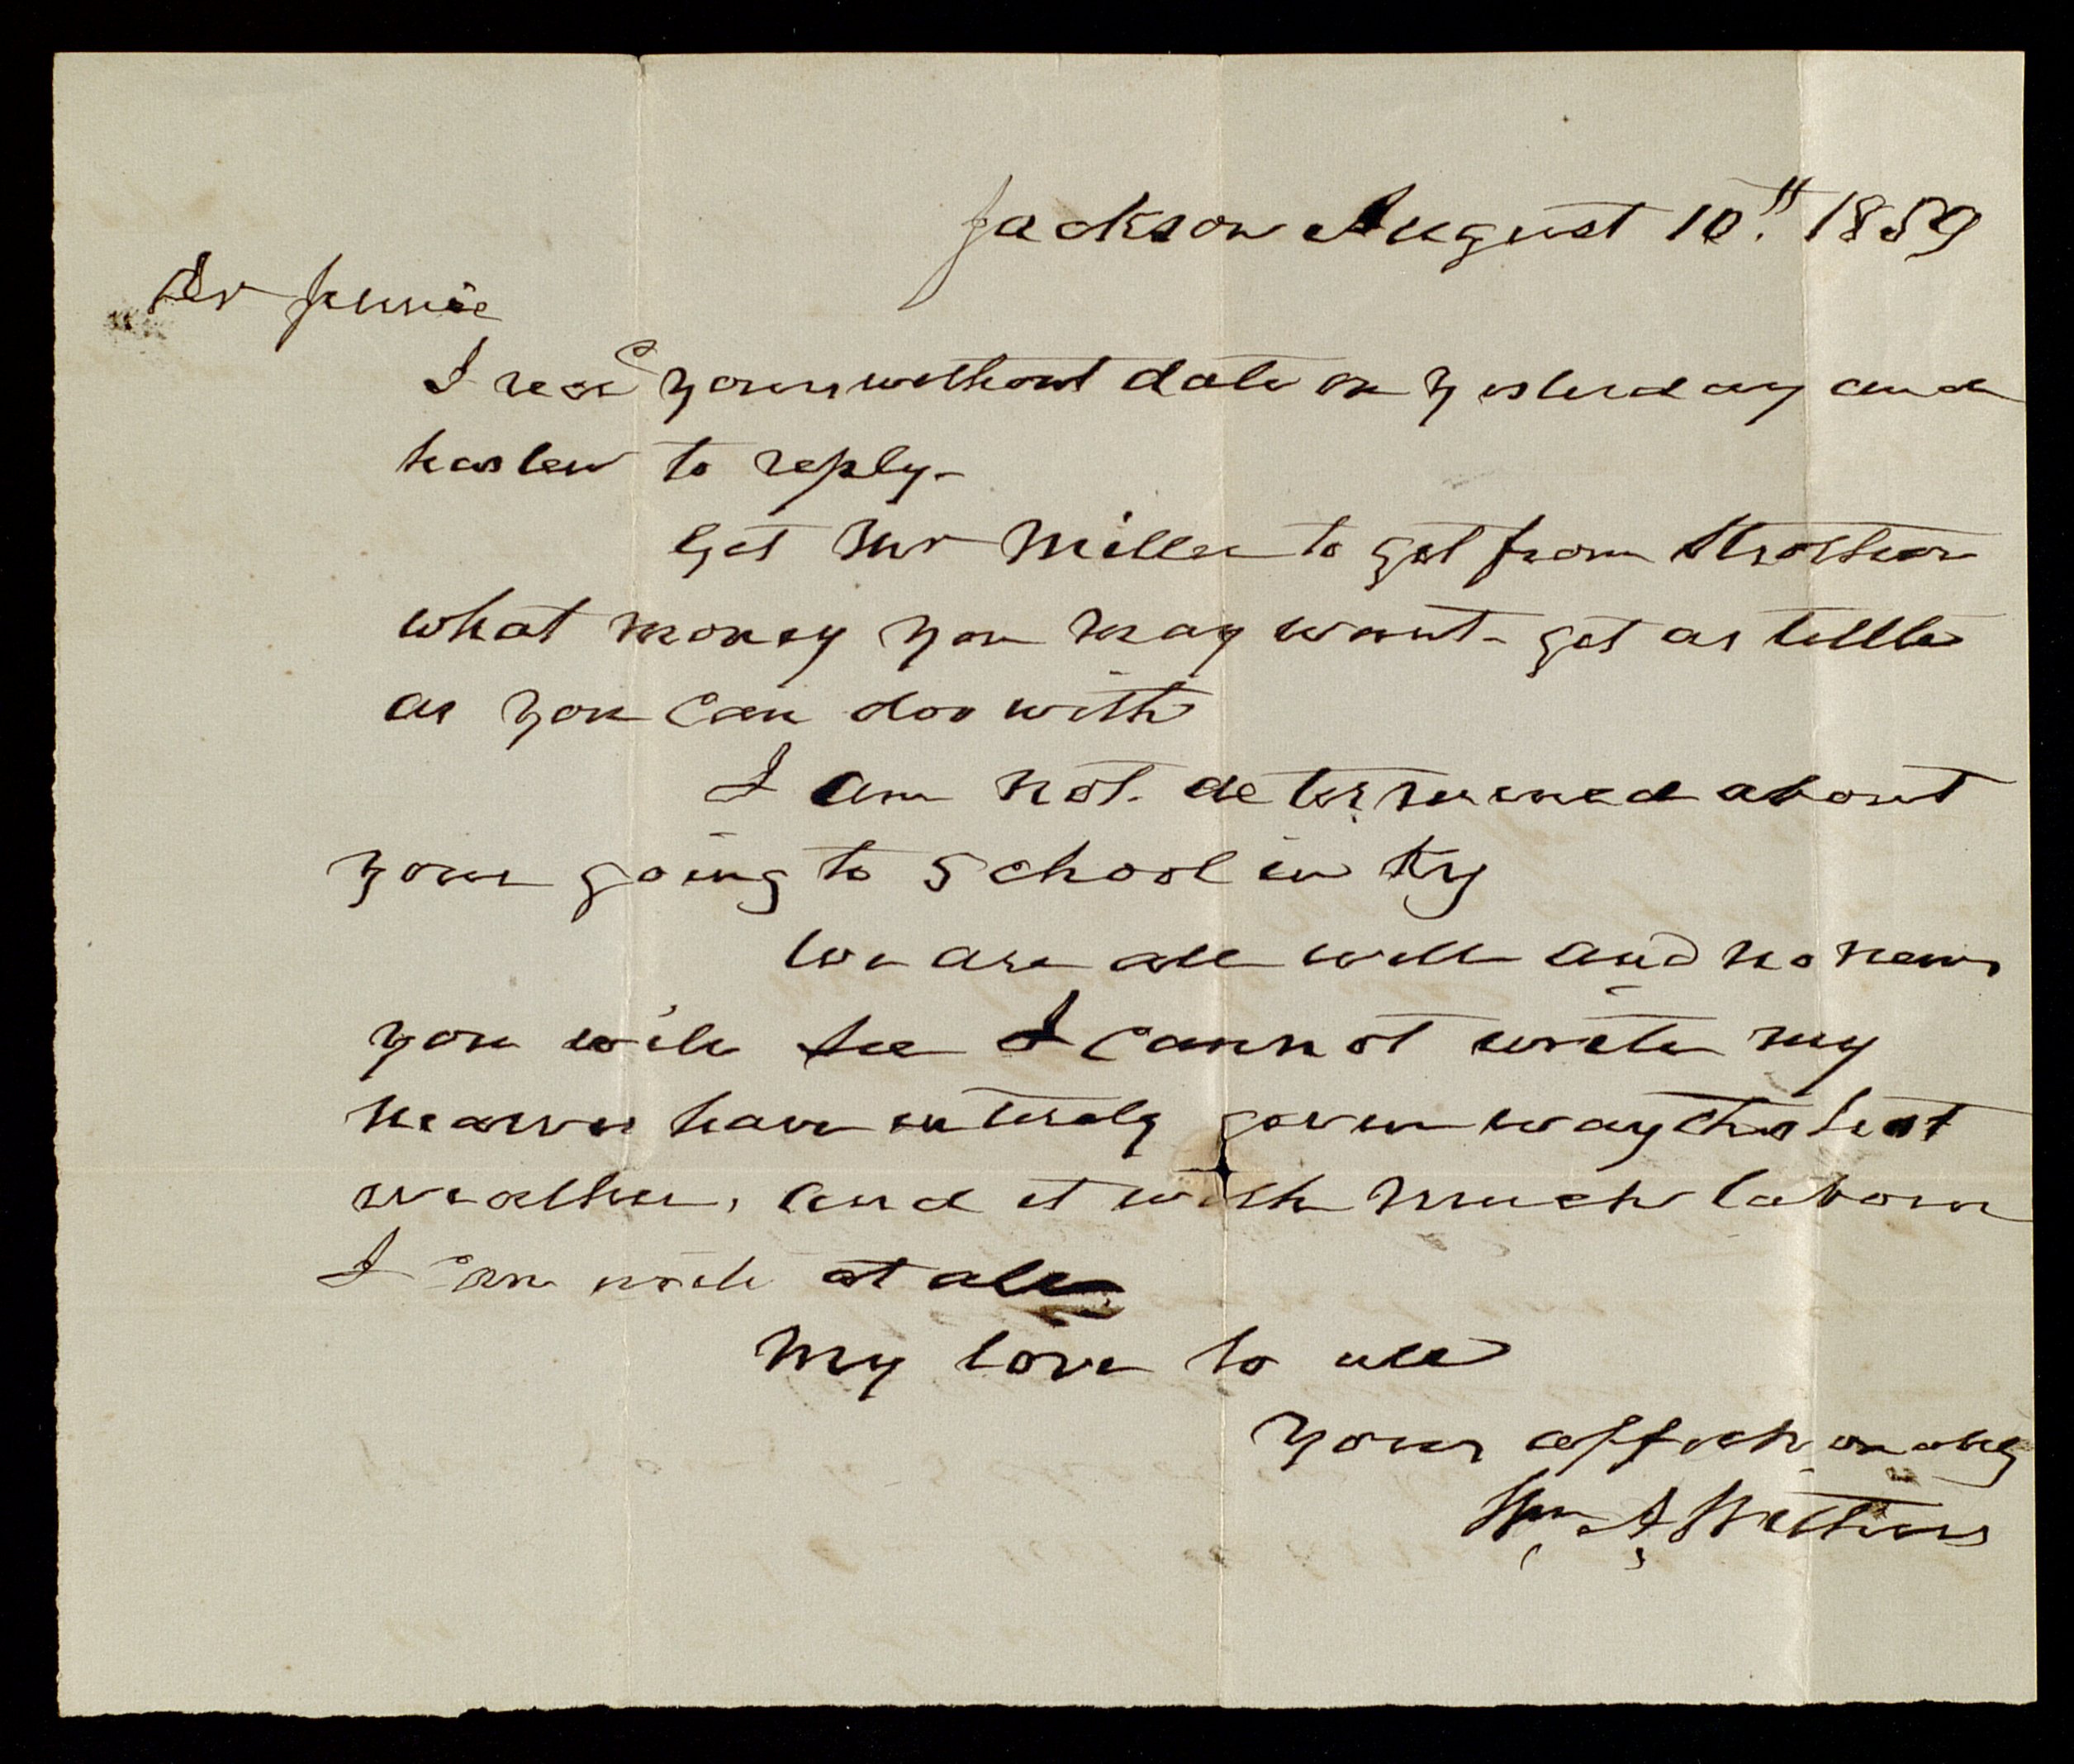 Jackson August 10th 1859
Dr Jennie
I recd yours without date on yesterday and
hasten to reply-
Get Mr Miller to get from Strother
what money you may want- get as little
as you can doo with
I am not determined about
your going to School in Ky
We are all well and no news
you will see I cannot write my
nearves have entirely given way this hot
weather, and it with much labour
I can write at all
My love to all
Yours affectionately
Wm A Withers